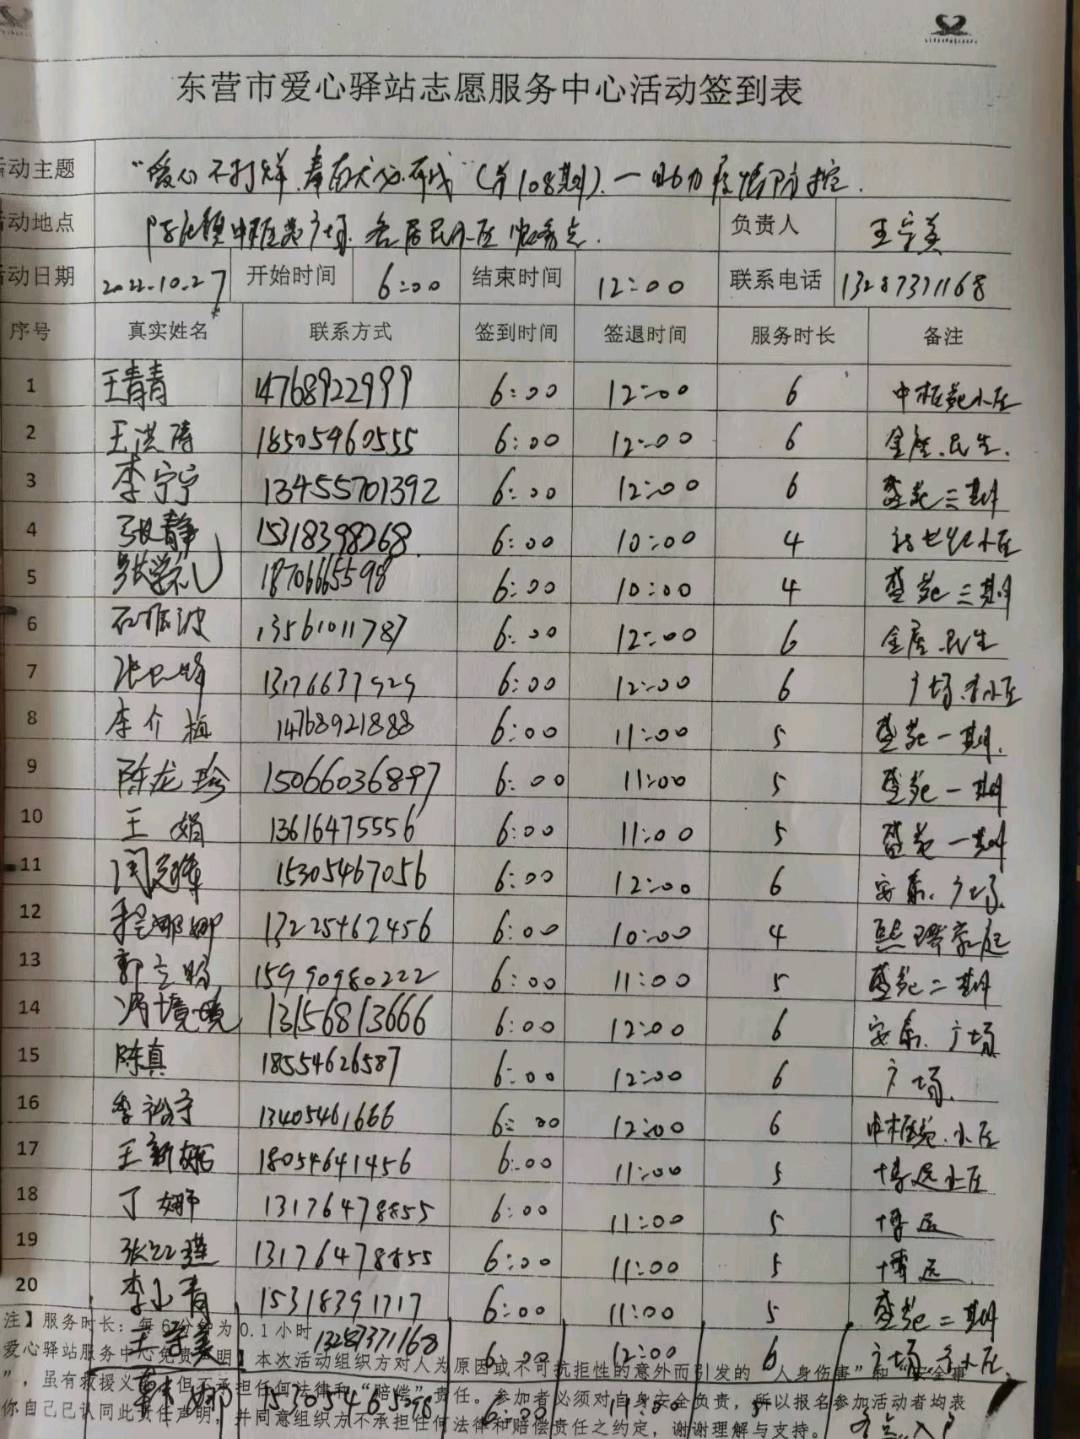 东营市爱心驿站志愿服务中心活动签到表
活动主题 "爱心不打烊 (第108期).一助力疫情防控.
活动地点 广场.各居民小区 负责人 王宁美
活动日期 2022.10.27 开始时间 6:00 结束时间 12:00 联系电话 13287371168
序号 真实姓名 联系方式 签到时间 签退时间 服务时长 备注
1 王青青 14768922999 6:00 12:00 6 小区
2 王洪涛 18505460555 6:00 12:00 6 民生.
3 李宁宁 13455701392 6:00 12:00 6 盛苑三期
4 张静 15318398268 6:00 10:00 4 新世纪小区
5 张学礼 18706665598 6:00 10:00 4 盛苑三期
6 石振波 13561011787 6:00 12:00 6 民生
7 13176637929 6:00 12:00 6 广场.
8 李介梅 14768921888 6:00 11:00 5 盛苑一期.
9 陈龙珍 15066036897 6:00 11:00 5 盛苑一期
10 王娟 13616475556 6:00 11:00 5 盛苑一期
11 15305467056 6:00 12:00 6 安泰.广场.
12 程娜娜 13225462456 6:00 10:00 4
13 郭 15990980222 6:00 11:00 5 盛苑二期
14 冯境境 13156813666 6:00 12:00 6 安泰.广场
15 陈真 18554626587 6:00 12:00 6 广场.
16 李 13405461666 6:00 12:00 6 小区
17 王新 18054641456 6:00 11:00 5 博远小区
18 丁娜 13176478855 6:00 11:00 5 博远
19 张 13176478855 6:00 11:00 5 博远
20 李小青 15318391717 6:00 11:00 5 盛苑二期
注】服务时长:每6分钟为0.1小时
王宁美 13287371168 6:00 12:00 6 广场
爱心驿站服务中心免责声明】本次活动组织方对人为原因或不可抗拒性的意外而引发的"人身伤害"和"安全事
",虽有救援义务,但不承担任何法律和"赔偿"责任。参加者必须对自身安全负责,所以报名参加活动者均表
娜 15305465398 6:00 11:00 5
你自己已认同此责任声明,并同意组织方不承担任何法律和赔偿责任之约定,谢谢理解与支持。